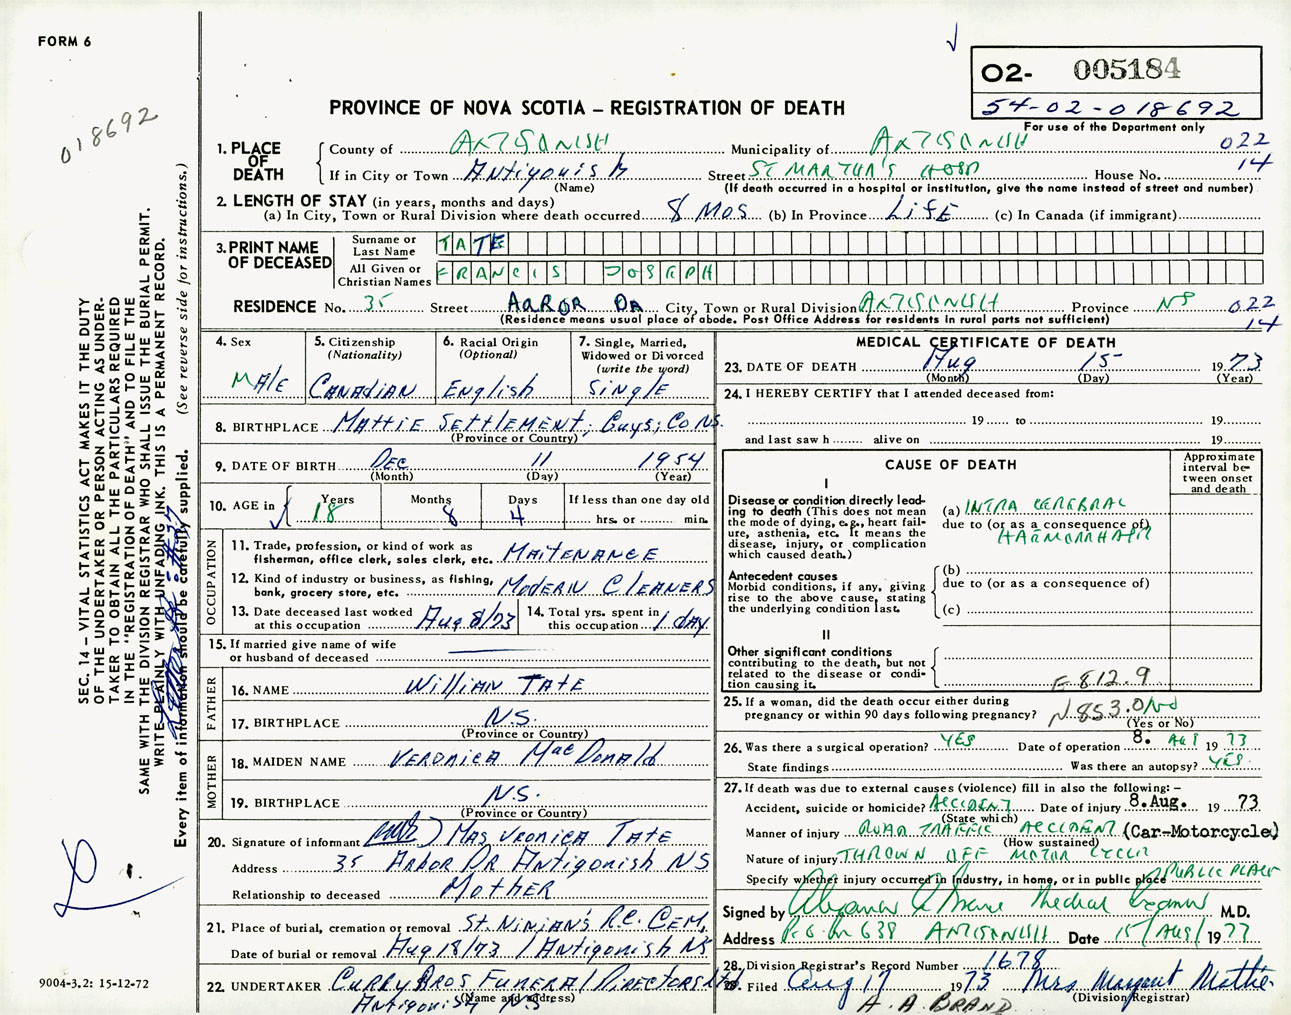 FORM 6
018692
O2- 005184
54-02-018692
For use of the Department only
PROVINCE OF NOVA SCOTIA – REGISTRATION OF DEATH
1. PLACE OF DEATH
County of ANTIGONISH Municipality of ANTIGONISH 022
If in City or Town Antigonish Street ST MARTHA'S HOSP House No. 14
(Name) (If death occurred in a hospital or institution, give the name instead of street and number)
2. LENGTH OF STAY (in years, months and days)
(a) In City, Town or Rural Division where death occurred 8 MOS (b) In Province LIFE (c) In Canada (if immigrant)
3. PRINT NAME OF DECEASED
Surname or Last Name TATE
All Given or Christian Names FRANCIS JOSEPH
RESIDENCE No. 35 Street ARBOR DR City, Town or Rural Division ANTIGONISH Province NS 022
(Residence means usual place of abode. Post Office Address for residents in rural parts not sufficient) 14
4. Sex
MALE
5. Citizenship
(Nationality)
CANADIAN
6. Racial Origin
(Optional)
English
7. Single, Married,
Widowed or Divorced
(write the word)
Single
8. BIRTHPLACE MATTIE SETTLEMENT, Guys; Co NS.
(Province or Country)
9. DATE OF BIRTH DEC 11 1954
(Month) (Day) (Year)
10. AGE in
Years Months Days If less than one day old
18 8 4 hrs. or min.
OCCUPATION
11. Trade, profession, or kind of work as
fisherman, office clerk, sales clerk, etc. MAITENANCE
12. Kind of industry or business, as fishing,
bank, grocery store, etc. MODERN CLEANERS
13. Date deceased last worked
at this occupation Aug 8/73
14. Total yrs. spent in
this occupation 1 day
15. If married give name of wife
or husband of deceased
FATHER
16. NAME WILLIAN TATE
17. BIRTHPLACE N.S.
(Province or Country)
MOTHER
18. MAIDEN NAME VERONICA MacDonald
19. BIRTHPLACE N.S.
(Province or Country)
20. Signature of informant MRS VRONICA TATE
Address 35 ARBOR DR ANTIGONISH NS
Relationship to deceased MOTHER
21. Place of burial, cremation or removal ST. NINIAN'S R.C. CEM,
Date of burial or removal Aug 18/73 / Antigonish NS
22. UNDERTAKER CURRY BROS FUNERAL DIRECTORS Ltd
(Name and address)
Antigonish NS
MEDICAL CERTIFICATE OF DEATH
23. DATE OF DEATH Aug 15 1973
(Month) (Day) (Year)
24. I HEREBY CERTIFY that I attended deceased from:
19 to 19
and last saw h alive on 19
CAUSE OF DEATH
Approximate
interval be-
tween onset
and death
I
Disease or condition directly lead-
ing to death (This does not mean
the mode of dying, e.g., heart fail-
ure, asthenia, etc. It means the
disease, injury, or complication
which caused death.)
(a) INTRA CEREBRAL
due to (or as a consequence of)
HAEMORRHAGE
Antecedent causes
Morbid conditions, if any, giving
rise to the above cause, stating
the underlying condition last.
(b)
due to (or as a consequence of)
(c)
II
Other significant conditions
contributing to the death, but not
related to the disease or condi-
tion causing it.
E 812.9
25. If a woman, did the death occur either during
pregnancy or within 90 days following pregnancy? N 853.0 No
(Yes or No)
26. Was there a surgical operation? YES Date of operation 8. AUG 19 73
State findings Was there an autopsy? YES
27. If death was due to external causes (violence) fill in also the following:–
Accident, suicide or homicide? ACCIDENT Date of injury 8.Aug. 19 73
(State which)
Manner of injury ROAD TRAFFIC ACCIDENT (Car-Motorcycle)
(How sustained)
Nature of injury THROWN OFF MOTOR CYCLE
Specify whether injury occurred in Industry, in home, or in public place PUBLIC PLACE
Signed by Medical Examiner M.D.
Address P.O. Box 638 ANTIGONISH Date 15/AUG/1977
28. Division Registrar's Record Number 1678
29. Filed Aug 17 1973 Mrs Margaret Mattie
(Division Registrar)
A. A. BRAND
SEC. 14 – VITAL STATISTICS ACT MAKES IT THE DUTY
OF THE UNDERTAKER OR PERSON ACTING AS UNDER-
TAKER TO OBTAIN ALL THE PARTICULARS REQUIRED
IN THE "REGISTRATION OF DEATH" AND TO FILE THE
SAME WITH THE DIVISION REGISTRAR WHO SHALL ISSUE THE BURIAL PERMIT.
WRITE PLAINLY WITH UNFADING INK. THIS IS A PERMANENT RECORD.
Every item of information should be carefully supplied. (See reverse side for instructions.)
9004-3.2: 15-12-72